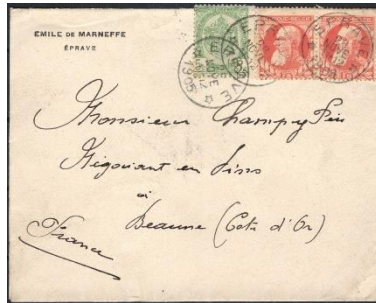 EMILE DE MARNEFFE
ÉPRAVE
EPRAVE
1905
10 10
Monsieur Champy Père
Négociant en Vins
à
Beaune (Côte d'Or)
France